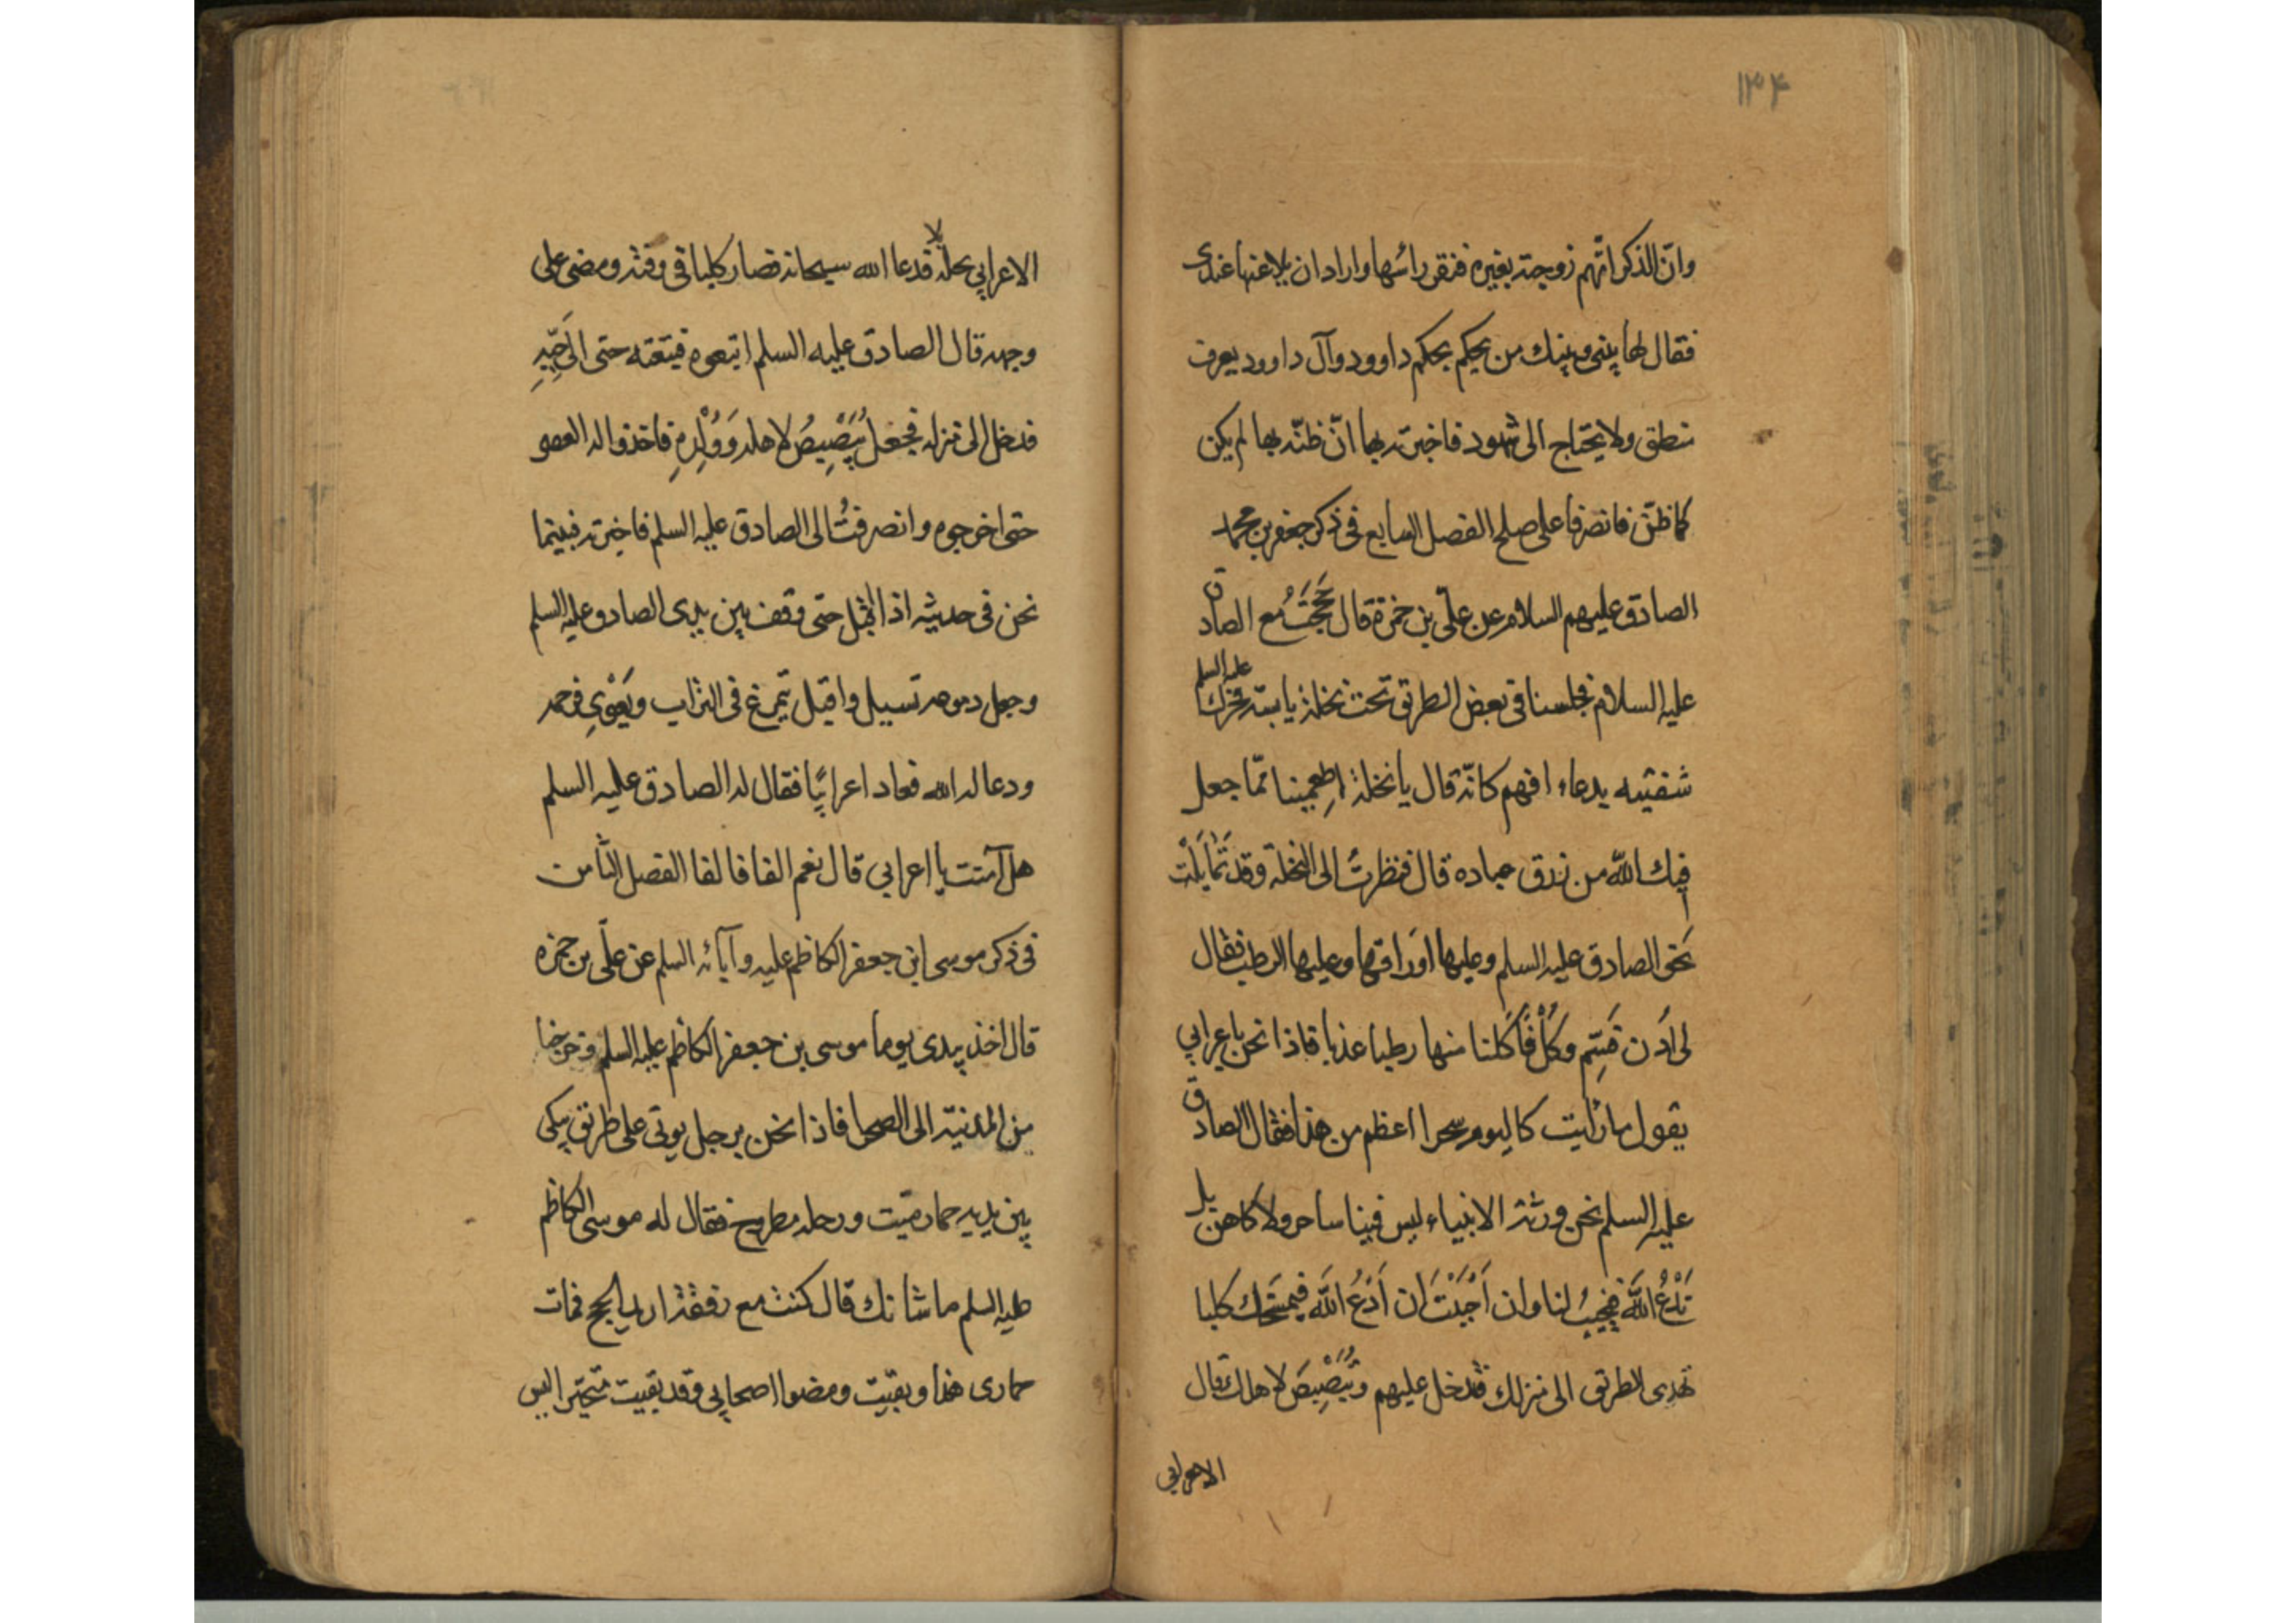 ۱۳۴
وانّ الذكر اتّهم زوجته بغيره فنقر راسها واراد ان يلاعنها عندى
فقال لها بينى وبينك من يحكم بحكم داوود وآل داوود يعرف
منطق ولا يحتاج الى شهود فاخبرته بها انّ ظنّه بها لم يكن
كما ظنّ فانصرفا على صلح الفصل السابع فى ذكر جعفر بن محمد
الصادق عليهم السلام عن علىّ بن حمزة قال حَجَجْتُ مع الصادق
عليه السلم
عليه السلام فجلسنا فى بعض الطريق تحت نخلة يابسة فحرّك
شفتيه بدعاء افهم كانّه قال يا نخلة اطعمينا ممّا جعل
فيك اللّه من رزق عباده قال فنظرتُ الى النخلة وقد تَمايَلَتْ
نحو الصادق عليه السلم وعليها اوراقها وعليها الرطب فقال
لى اَدن فَسَمِّ وكُلْ فَاَكلنا منها رطبا عذبا فاذا نحن باعرابي
يقول ما رايت كاليوم سحرا اعظم من هذا فقال الصادق
عليه السلم نحن ورثة الانبياء ليس فينا ساحر ولا كاهن بل
نَدْعُ اللّهَ فيجيبُ لنا وان اَجْبَبْتَ ان اَدْعُ اللّهَ فيمسَخك كلبا
تهدى الطريق الى منزلك فتدخل عليهم وتُبَصْبِصَ لاهلك قال
الاعرابي
الاعرابي بجهله لا قدعا الله سبحانه فصار كلبا فى وقته ومضى على
وجهه قال الصادق عليه السلم اتبعوه فتبعته حتى الى حَيِّهِ
فدخل الى منزله فجعل يُبَصْبِصُ لاهله وَوُلْدِهِ فاخذوا له العصو
حتى اخرجوه وانصرفتُ الى الصادق عليه السلم فاخبرته فبينما
نحن فى حديثه اذا اقبل حتى وقف بين يدى الصادق عليه السلم
وجعل دموعه تسيل واقبل يتمرغ فى التراب ويَعْوِي فرحمه
ودعا له الله فعاد اعرابيًا فقال له الصادق عليه السلم
هل آمنت يا اعرابي قال نعم الفا فالفا الفصل الثامن
فى ذكر موسى ابن جعفر الكاظم عليه وآبائه السلم عن علىّ بن حمزه
قال اخذ بيدى يوما موسى بن جعفر الكاظم عليه السلم فخرجنا
من المدنية الى الصحرا فاذا نحن برجل يوتى على طريق يبكى
بين يديه حمار ميّت ورحله مطروح فقال له موسى الكاظم
عليه السلم ما شانك قال كنت مع رفقة اريد الحج فمات
حمارى هذا وبقيت ومضوا اصحابي وقد بقيت متحيّر اليس